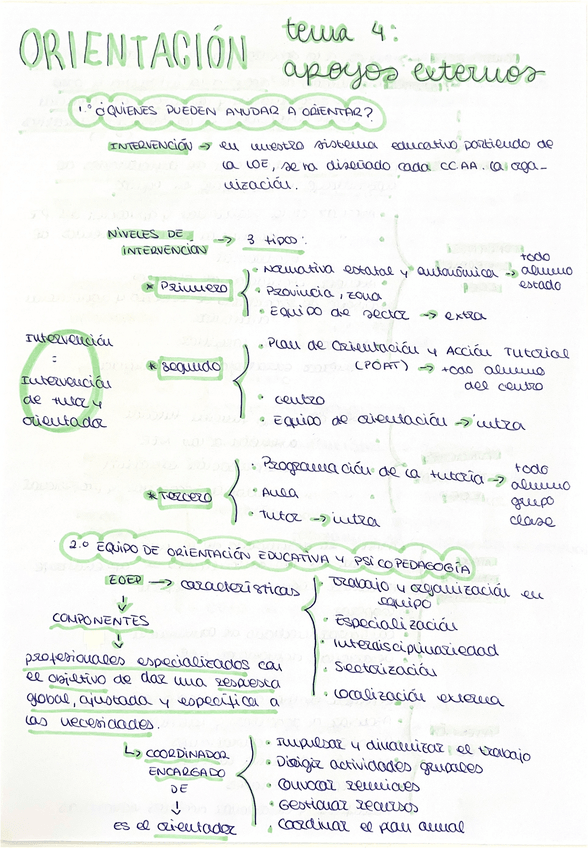 ORIENTACIÓN
tema 4:
apoyos externos
1.º ¿QUIENES PUEDEN AYUDAR A ORIENTAR?
INTERVENCIÓN → en nuestro sistema educativo partiendo de
la LOE, se ha diseñado cada CCAA. la orga-
nización.
NIVELES DE
INTERVENCIÓN → 3 tipos:
* Primero
· Normativa estatal y autonómica → todo
alumno
estado
· Provincia, zona
· Equipo de sector → extra
Intervención
=
Intervención
de tutor y
orientador
* Segundo
· Plan de Orientación y Acción Tutorial
(POAT) → todo alumno
del centro
· centro
· Equipo de orientación → intra
* Tercero
· Programación de la tutoría → todo
alumno
grupo
clase
· Aula
· Tutor → intra
2.º EQUIPO DE ORIENTACIÓN EDUCATIVA Y PSICOPEDAGOGÍA
EOEP → características
· Trabajo y organización en
equipo
· Especialización
· Interdisciplinariedad
· Sectorización
· Localización externa
↓
COMPONENTES
↓
profesionales especializados con
el objetivo de dar una respuesta
global, ajustada y específica a
las necesidades.
↳ COORDINADOR
ENCARGADO
DE
↓
es el orientador
· Impulsar y dinamizar el trabajo
· Dirigir actividades grupales
· Convocar reuniones
· Gestionar recursos
· Coordinar el plan anual